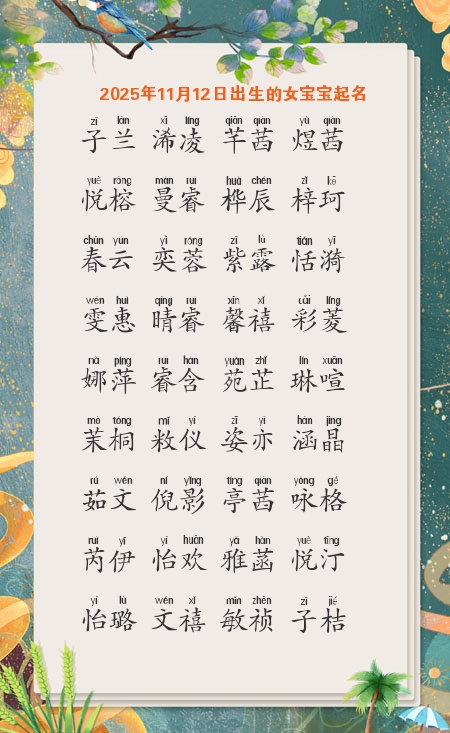 2025年11月12日出生的女宝宝起名
zǐ lán xī líng qiān qiàn yù qiàn
子兰 浠凌 芊茜 煜茜
yuè róng màn ruì huà chén zǐ kē
悦榕 曼睿 桦辰 梓珂
chūn yún yì róng zǐ lù tián yī
春云 奕蓉 紫露 恬漪
wén huì qíng ruì xīn xǐ cǎi líng
雯惠 晴睿 馨禧 彩菱
nà píng ruì hán yuàn zhǐ lín xuān
娜萍 睿含 苑芷 琳喧
mò tóng mǐ yí zī yì hán jīng
茉桐 敉仪 姿亦 涵晶
rú wén ní yǐng tíng qiàn yǒng gé
茹文 倪影 亭茜 咏格
ruì yī yí huān yǎ hàn yuè tīng
芮伊 怡欢 雅菡 悦汀
yí lù wén xǐ mǐn zhēn zǐ jié
怡璐 文禧 敏祯 子桔